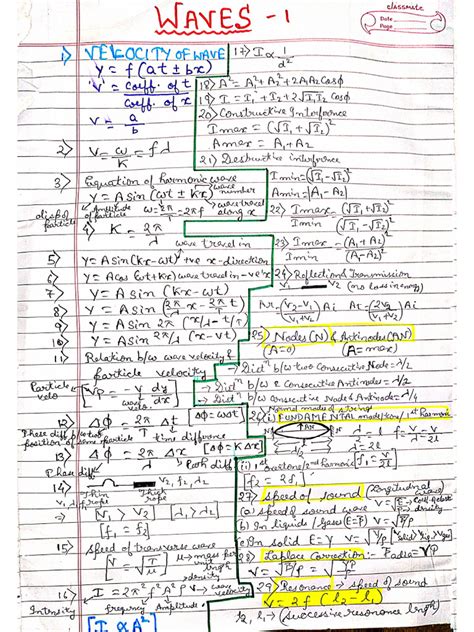 WAVES - 1
classmate
Date
Page
1) VELOCITY OF WAVE
y = f(at ± bx)
V = coeff. of t / coeff. of x
V = a/b
2) V = ω/K = fλ
3) Equation of harmonic wave
y = A sin (ωt ± Kx)
wave number
Amplitude of particle
ω = 2π/T = 2πf
wave travel along x
disp of particle
4) K = 2π/λ
wave travel in
5) y = A sin (Kx - ωt) +ve x-direction
6) y = A cos (ωt + Kx) wave travel in -ve x
7) y = A sin (Kx - ωt)
8) y = A sin (2π/λ x - 2π/T t)
9) y = A sin 2π (x/λ - t/T)
10) y = A sin 2π/λ (x - vt)
11) Relation b/w wave velocity & particle velocity
Particle velo.
Vp = -V dy/dx
wave velo.
12) Δφ = 2π/T Δt
[Δφ = ωΔt]
Phase diff b/w two
of same particle
time difference
13) Δφ = 2π/λ Δx
[Δφ = KΔx]
Phase diff
Path diff
14) V2, f2, λ2
Thin rope
Thick rope
[V1 > V2, λ1 > λ2]
[f1 = f2]
15) Speed of transverse wave
V = √(T/μ)
mass per unit length
density
16) I = 2π² f² A² ρ V
wave velocity
Intensity
frequency
Amplitude
density
[I ∝ A²]
17) I ∝ 1/d²
18) A² = A1² + A2² + 2A1A2 cosφ
19) I = I1 + I2 + 2√I1I2 cosφ
20) Constructive Interference
Imax = (√I1 + √I2)²
Amax = A1 + A2
21) Destructive interference
Imin = (√I1 - √I2)²
Amin = |A1 - A2|
22) Imax/Imin = (√I1 + √I2)²/(√I1 - √I2)²
23) Imax/Imin = (A1 + A2)²/(A1 - A2)²
24) Reflection & Transmission
V1 V2 (no loss in energy)
Ar = (V2 - V1 / V1 + V2) Ai
At = (2V2 / V1 + V2) Ai
25) Nodes (N) & Antinodes (AN)
(A=0) (A=max)
Distⁿ b/w two consecutive Node = λ/2
Distⁿ b/w 2 Consecutive Antinodes = λ/2
Distⁿ b/w consecutive Node & Antinode = λ/4
26) Normal modes of string
(i) FUNDAMENTAL mode/tone/1st harmonic
f = V/λ = V/2l
(ii) 1st overtone/2nd harmonic
[f2 = 2f1]
27) Speed of sound (Longitudinal wave)
(a) speed of sound wave V = √(E/ρ)
density
(b) In liquids/gases (E=P) V = √(P/ρ)
(c) In solid E = Y V = √(Y/ρ) [Vsolid > Vliq > Vgas]
28) Laplace Correction
29) Resonance → speed of sound
V = 2f (l2 - l1)
l2, l1 → (successive resonance length)